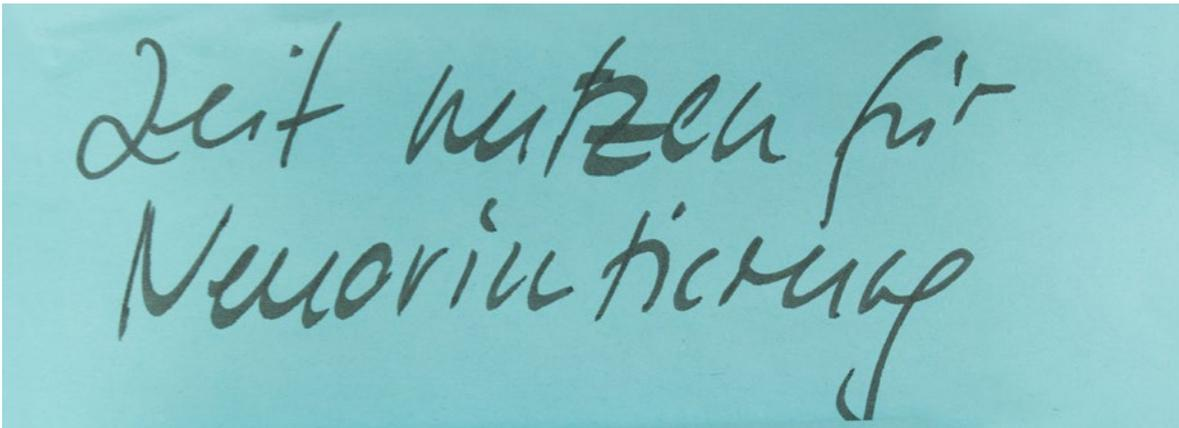 Zeit nutzen für
Neuorientierung